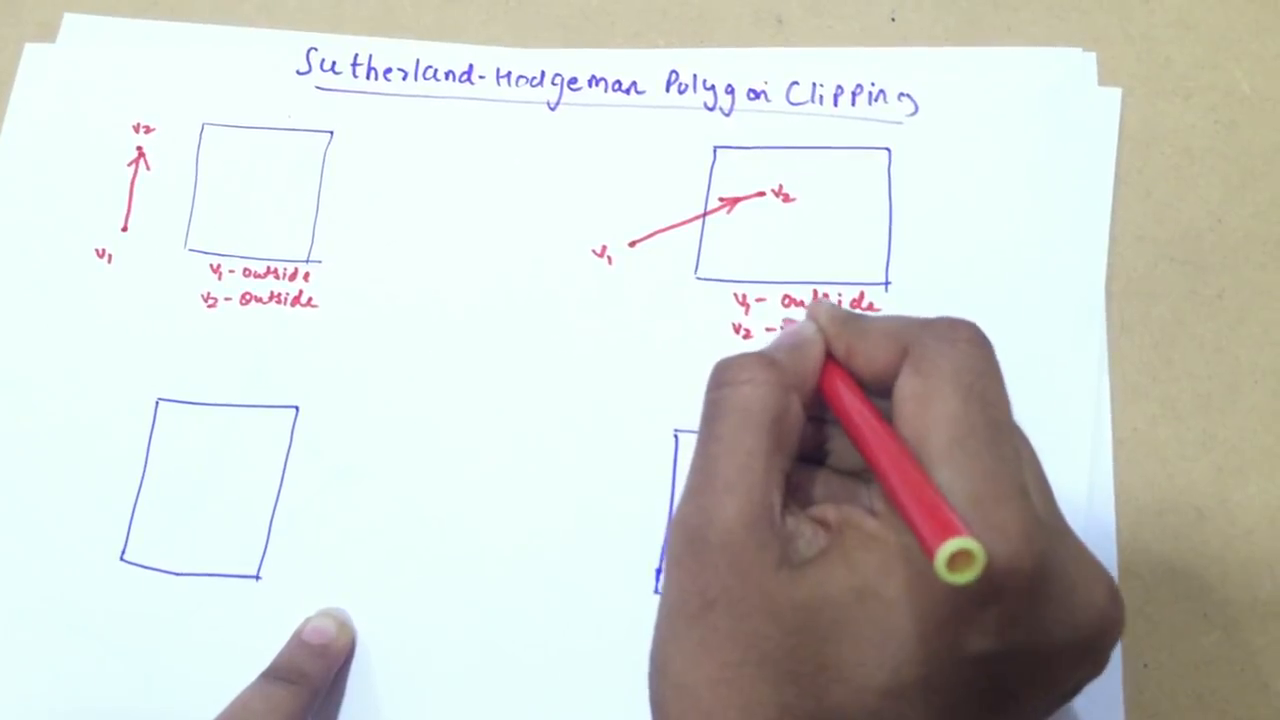 Sutherland-Hodgeman Polygon Clipping
v2
v1
v1 - outside
v2 - outside
v2
v1
v1 - outside
v2 -